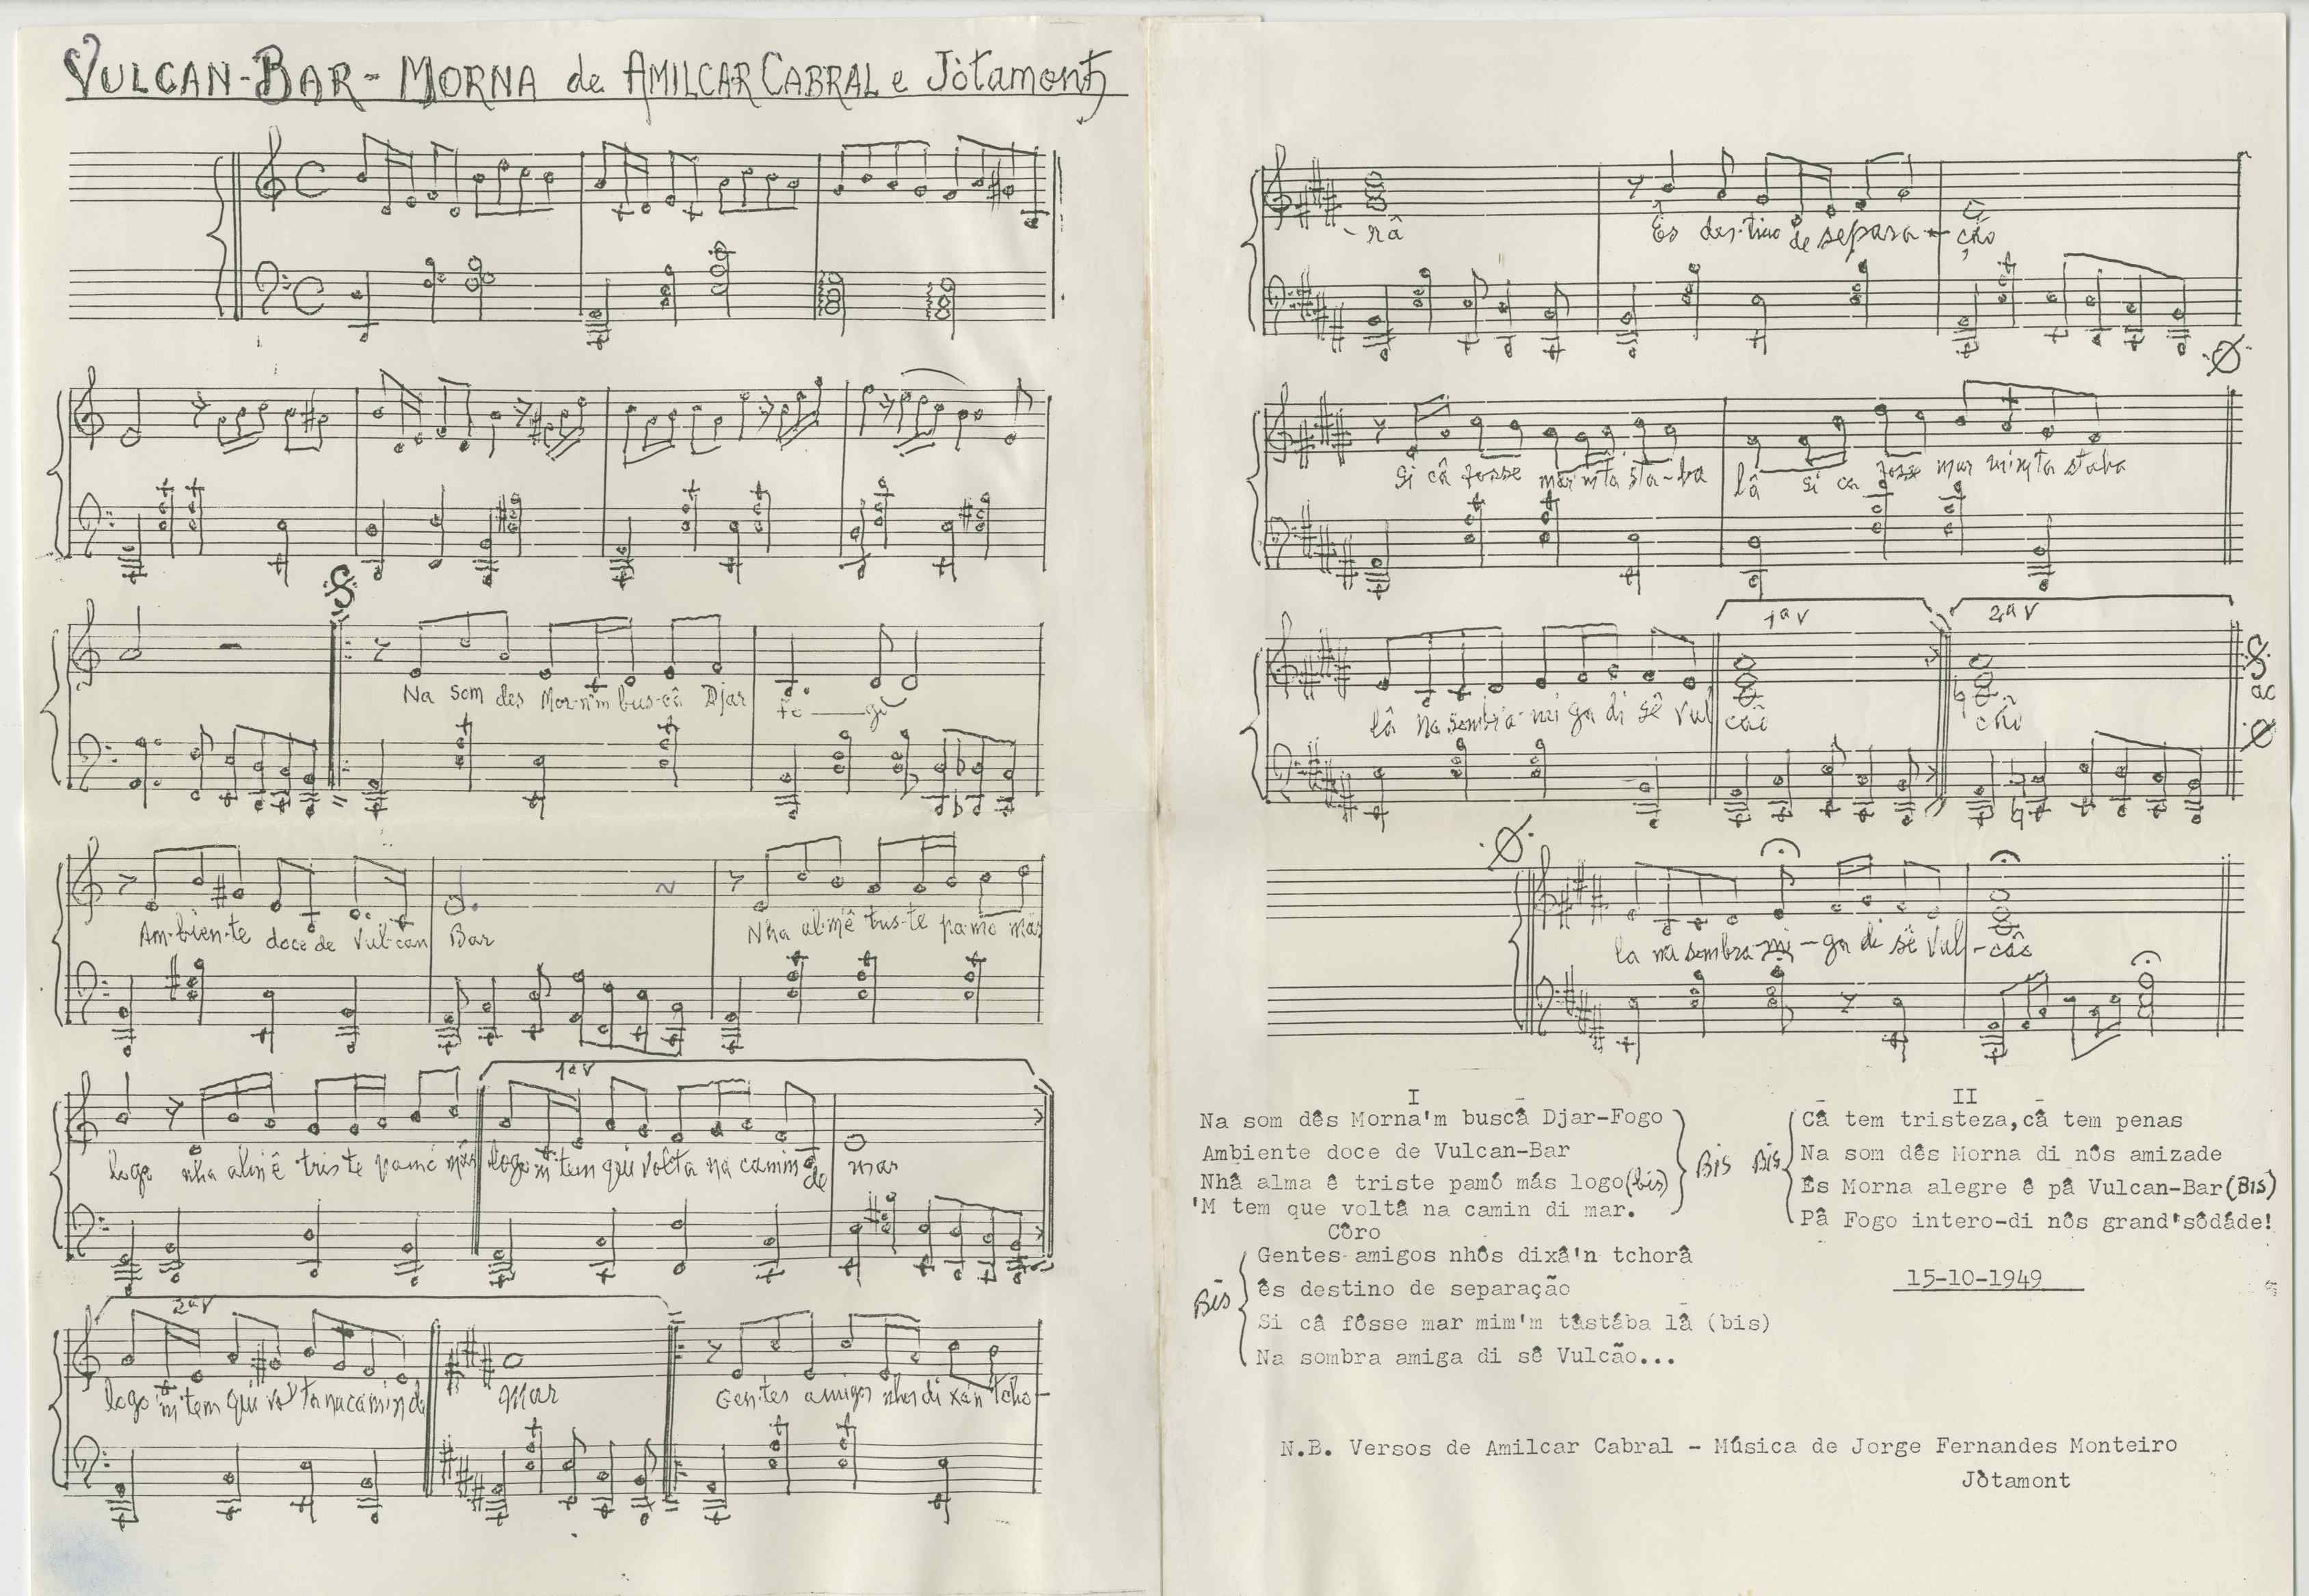 VULCAN-BAR - MORNA de AMILCAR CABRAL e Jòtamont
Na som des Mor-n'm bus-câ Djar fo — gu
Am-bien-te doce de Vul-can Bar Nha alm'ê tris-te pa-mo más
logo nha alm'ê tris te pamo más logo 'm tem qui volta na camin de mar
1ª V
2ª V
logo 'm tem qui vol ta na camin de Mar Gentes amigos nhos di xa'n tcho-
- râ Ês des-tino de separa - ção
Si câ fosse mar m'ta sta-ba lâ si ca fosse mar mim'ta staba
1ª V 2ª V
lâ na sombra-mi ga di sê Vul cão cão
ao
la na sombra-mi-ga di sê Vul-cão
I
Na som dês Morna'm buscâ Djar-Fogo
Ambiente doce de Vulcan-Bar
Nhâ alma ê triste pamó más logo (bis)
'M tem que voltâ na camin di mar.
Bis
Côro
Gentes amigos nhôs dixâ'n tchorâ
ês destino de separação
Si câ fôsse mar mim'm tâstába lâ (bis)
Na sombra amiga di sê Vulcão...
Bis
II
Câ tem tristeza,câ tem penas
Na som dês Morna di nôs amizade
Ês Morna alegre ê pâ Vulcan-Bar (BIS)
Pâ Fogo intero-di nôs grand'sôdáde!
Bis
15-10-1949
N.B. Versos de Amilcar Cabral - Música de Jorge Fernandes Monteiro
Jòtamont